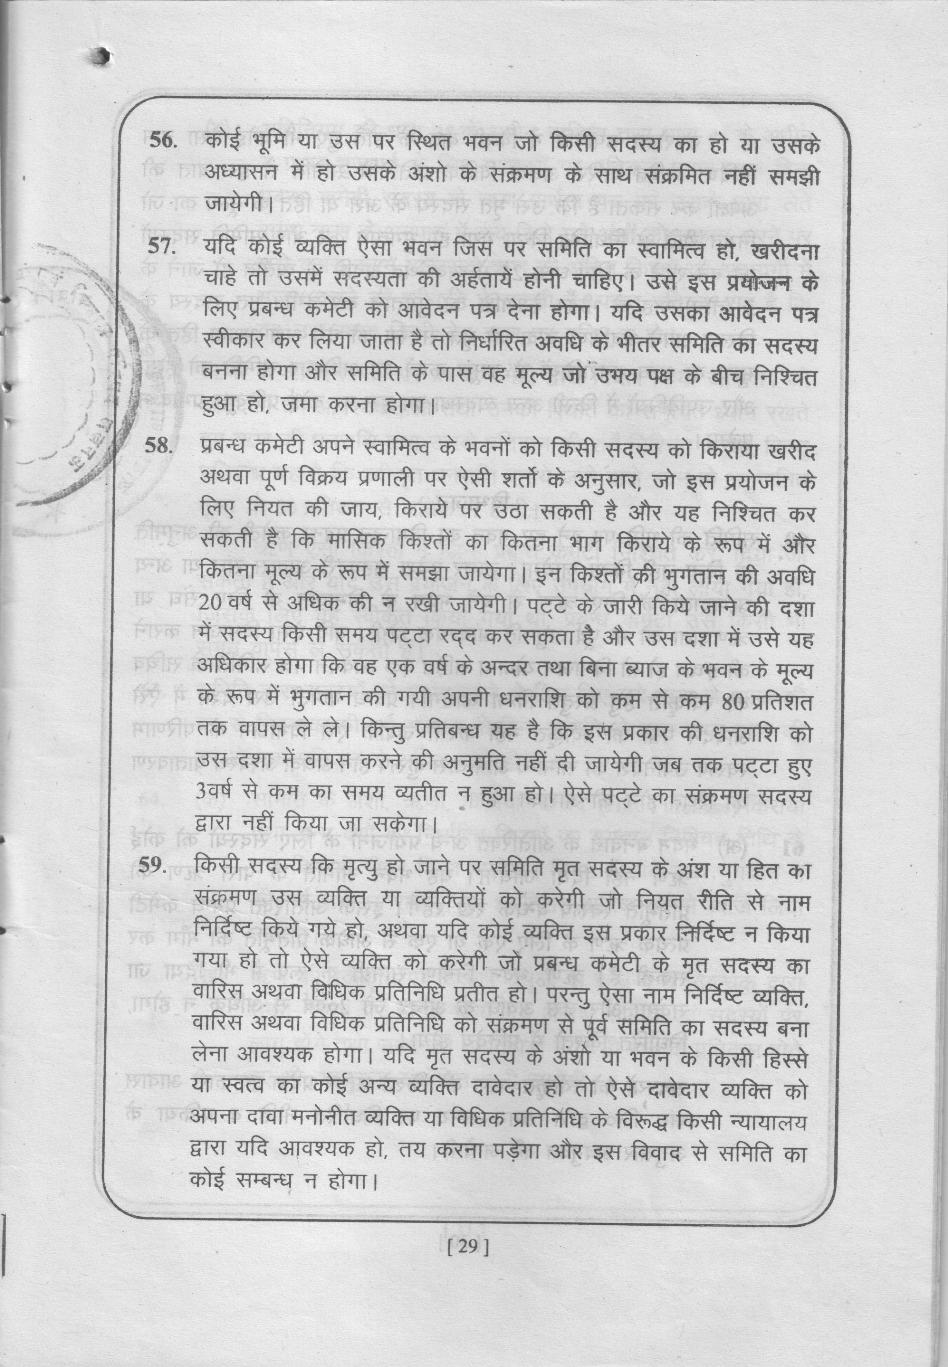 56. कोई भूमि या उस पर स्थित भवन जो किसी सदस्य का हो या उसके
अध्यासन में हो उसके अंशो के संक्रमण के साथ संक्रमित नहीं समझी
जायेगी।
57. यदि कोई व्यक्ति ऐसा भवन जिस पर समिति का स्वामित्व हो, खरीदना
चाहे तो उसमें सदस्यता की अर्हतायें होनी चाहिए। उसे इस प्रयोजन के
लिए प्रबन्ध कमेटी को आवेदन पत्र देना होगा। यदि उसका आवेदन पत्र
स्वीकार कर लिया जाता है तो निर्धारित अवधि के भीतर समिति का सदस्य
बनना होगा और समिति के पास वह मूल्य जो उभय पक्ष के बीच निश्चित
हुआ हो, जमा करना होगा।
58. प्रबन्ध कमेटी अपने स्वामित्व के भवनों को किसी सदस्य को किराया खरीद
अथवा पूर्ण विक्रय प्रणाली पर ऐसी शर्तो के अनुसार, जो इस प्रयोजन के
लिए नियत की जाय, किराये पर उठा सकती है और यह निश्चित कर
सकती है कि मासिक किश्तों का कितना भाग किराये के रूप में और
कितना मूल्य के रूप में समझा जायेगा। इन किश्तों की भुगतान की अवधि
20 वर्ष से अधिक की न रखी जायेगी। पट्टे के जारी किये जाने की दशा
में सदस्य किसी समय पट्टा रद्द कर सकता है और उस दशा में उसे यह
अधिकार होगा कि वह एक वर्ष के अन्दर तथा बिना ब्याज के भवन के मूल्य
के रूप में भुगतान की गयी अपनी धनराशि को कम से कम 80 प्रतिशत
तक वापस ले ले। किन्तु प्रतिबन्ध यह है कि इस प्रकार की धनराशि को
उस दशा में वापस करने की अनुमति नहीं दी जायेगी जब तक पट्टा हुए
3वर्ष से कम का समय व्यतीत न हुआ हो। ऐसे पट्टे का संक्रमण सदस्य
द्वारा नहीं किया जा सकेगा।
59. किसी सदस्य कि मृत्यु हो जाने पर समिति मृत सदस्य के अंश या हित का
संक्रमण उस व्यक्ति या व्यक्तियों को करेगी जो नियत रीति से नाम
निर्दिष्ट किये गये हो, अथवा यदि कोई व्यक्ति इस प्रकार निर्दिष्ट न किया
गया हो तो ऐसे व्यक्ति को करेगी जो प्रबन्ध कमेटी के मृत सदस्य का
वारिस अथवा विधिक प्रतिनिधि प्रतीत हो। परन्तु ऐसा नाम निर्दिष्ट व्यक्ति,
वारिस अथवा विधिक प्रतिनिधि को संक्रमण से पूर्व समिति का सदस्य बना
लेना आवश्यक होगा। यदि मृत सदस्य के अंशो या भवन के किसी हिस्से
या स्वत्व का कोई अन्य व्यक्ति दावेदार हो तो ऐसे दावेदार व्यक्ति को
अपना दावा मनोनीत व्यक्ति या विधिक प्रतिनिधि के विरूद्ध किसी न्यायालय
द्वारा यदि आवश्यक हो, तय करना पड़ेगा और इस विवाद से समिति का
कोई सम्बन्ध न होगा।
[ 29 ]